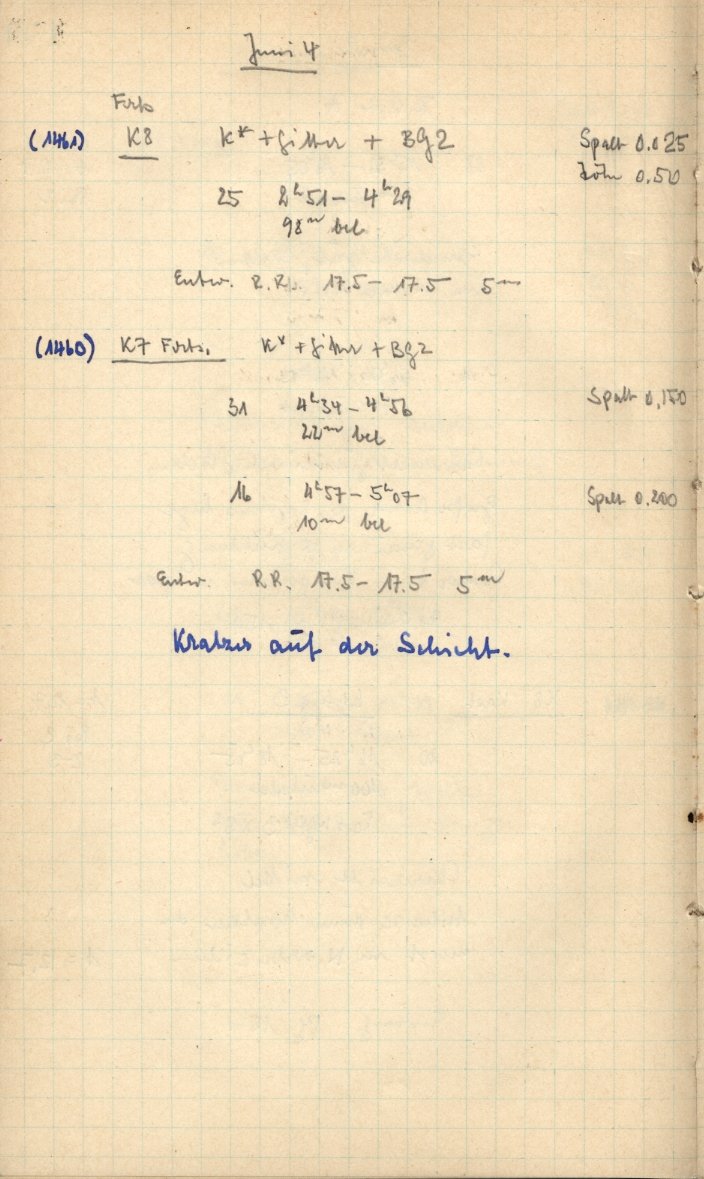 Juni 4
Forts
(1461) K8 K* + Gitter + BG2 Spalt 0.025
Höhe 0,50
25 2h51 – 4h29
98m bel
Entw. R.R. 17.5 – 17.5 5m
(1460) K7 Forts. K* + Gitter + BG2
31 4h34 – 4h56 Spalt 0,150
22m bel
16 4h57 – 5h07 Spalt 0.200
10m bel
Entw. R.R. 17.5 – 17.5 5m
Kratzer auf der Schicht.